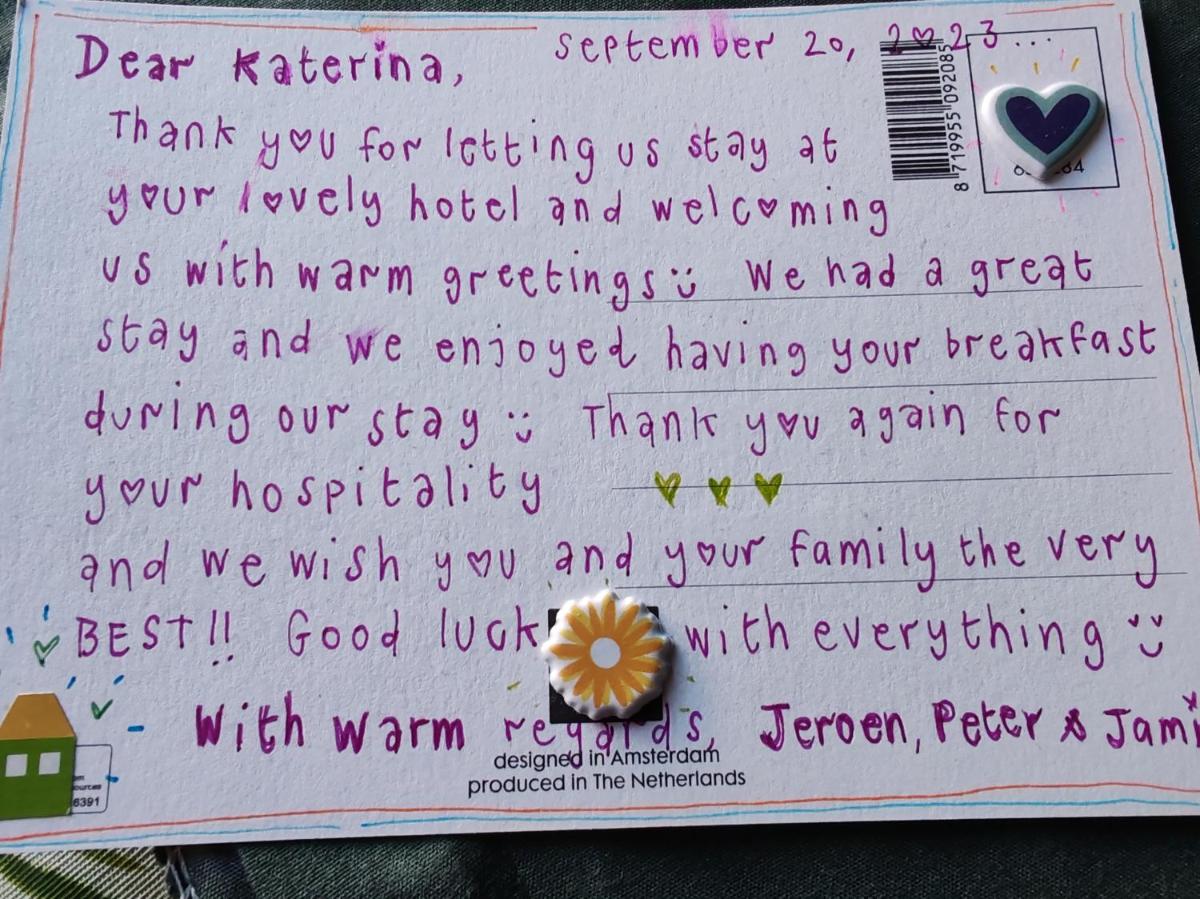 Dear Katerina,
September 20, 2023...
8 719955 092085
Thank you for letting us stay at
your lovely hotel and welcoming
us with warm greetings :) We had a great
stay and we enjoyed having your breakfast
during our stay :) Thank you again for
your hospitality
and we wish you and your family the very
BEST!! Good luck with everything :)
With warm regards, Jeroen, Peter & Jami
designed in Amsterdam
produced in The Netherlands
6391